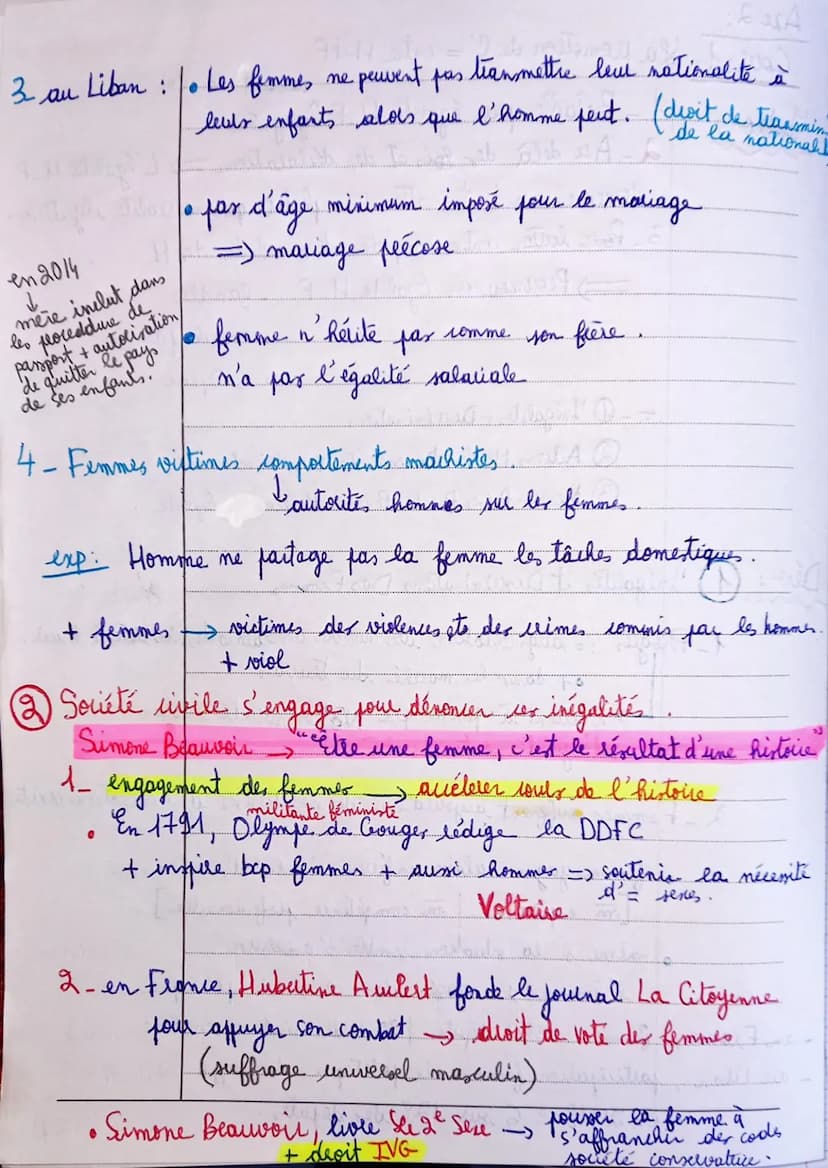 3 au Liban : • Les femmes, ne peuvent pas transmettre leur nationalité à
leurs enfants alors que l'homme peut. (droit de transmin
de la national
• pas d'âge minimum imposé pour le mariage
=> mariage précose
en 2014
↓
mère inclut dans
les procéddure de
passport + autorisation
de quitter le pays
de ses enfants.
• femme n'hérite pas comme son frère.
n'a pas l'égalité salariale
4 - Femmes victimes comportements machistes.
↓ autorités hommes sur les femmes.
exp: Homme ne partage pas la femme les tâches domestiques.
+ femmes → victimes des violences, ets des crimes commis par les hommes.
+ viol
② Société civile s'engage pour dénoncer ces inégalités.
Simone Beauvoir → "Etre une femme, c'est le résultat d'une histoire"
1- engagement des femmes → accélérer cours de l'histoire
militante féministe
• En 1791, Olympe de Gouges rédige la DDFC
+ inspire bcp femmes + aussi hommes => soutenir la nécessité
d'= sexes.
Voltaire
2- en France, Hubertine Auclert fonde le journal La Citoyenne
pour appuyer son combat → droit de vote des femmes
(suffrage universel masculin)
• Simone Beauvoir, livre Le 2e Sexe → pousser la femme à
s'affranchir des cods
société conservatrice.
+ droit IVG